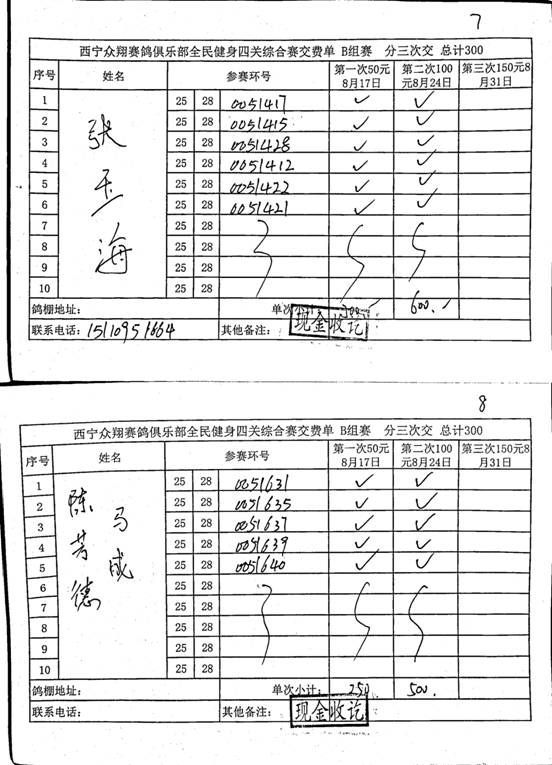 7
西宁众翔赛鸽俱乐部全民健身四关综合赛交费单 B组赛 分三次交 总计300
序号 姓名 参赛环号 第一次50元8月17日 第二次100元8月24日 第三次150元8月31日
张玉海
1 25 28 0051417 ✓ ✓
2 25 28 0051415 ✓ ✓
3 25 28 0051428 ✓ ✓
4 25 28 0051412 ✓ ✓
5 25 28 0051422 ✓ ✓
6 25 28 0051421 ✓ ✓
7 25 28
8 25 28
9 25 28
10 25 28
鸽棚地址: 单次小计: 600.
联系电话: 15110951664 其他备注: 现金收讫
8
西宁众翔赛鸽俱乐部全民健身四关综合赛交费单 B组赛 分三次交 总计300
序号 姓名 参赛环号 第一次50元8月17日 第二次100元8月24日 第三次150元8月31日
陈芳德 马成
1 25 28 0051631 ✓ ✓
2 25 28 0051635 ✓ ✓
3 25 28 0051637 ✓ ✓
4 25 28 0051639 ✓ ✓
5 25 28 0051640 ✓ ✓
6 25 28
7 25 28
8 25 28
9 25 28
10 25 28
鸽棚地址: 单次小计: 250 500.
联系电话: 其他备注: 现金收讫